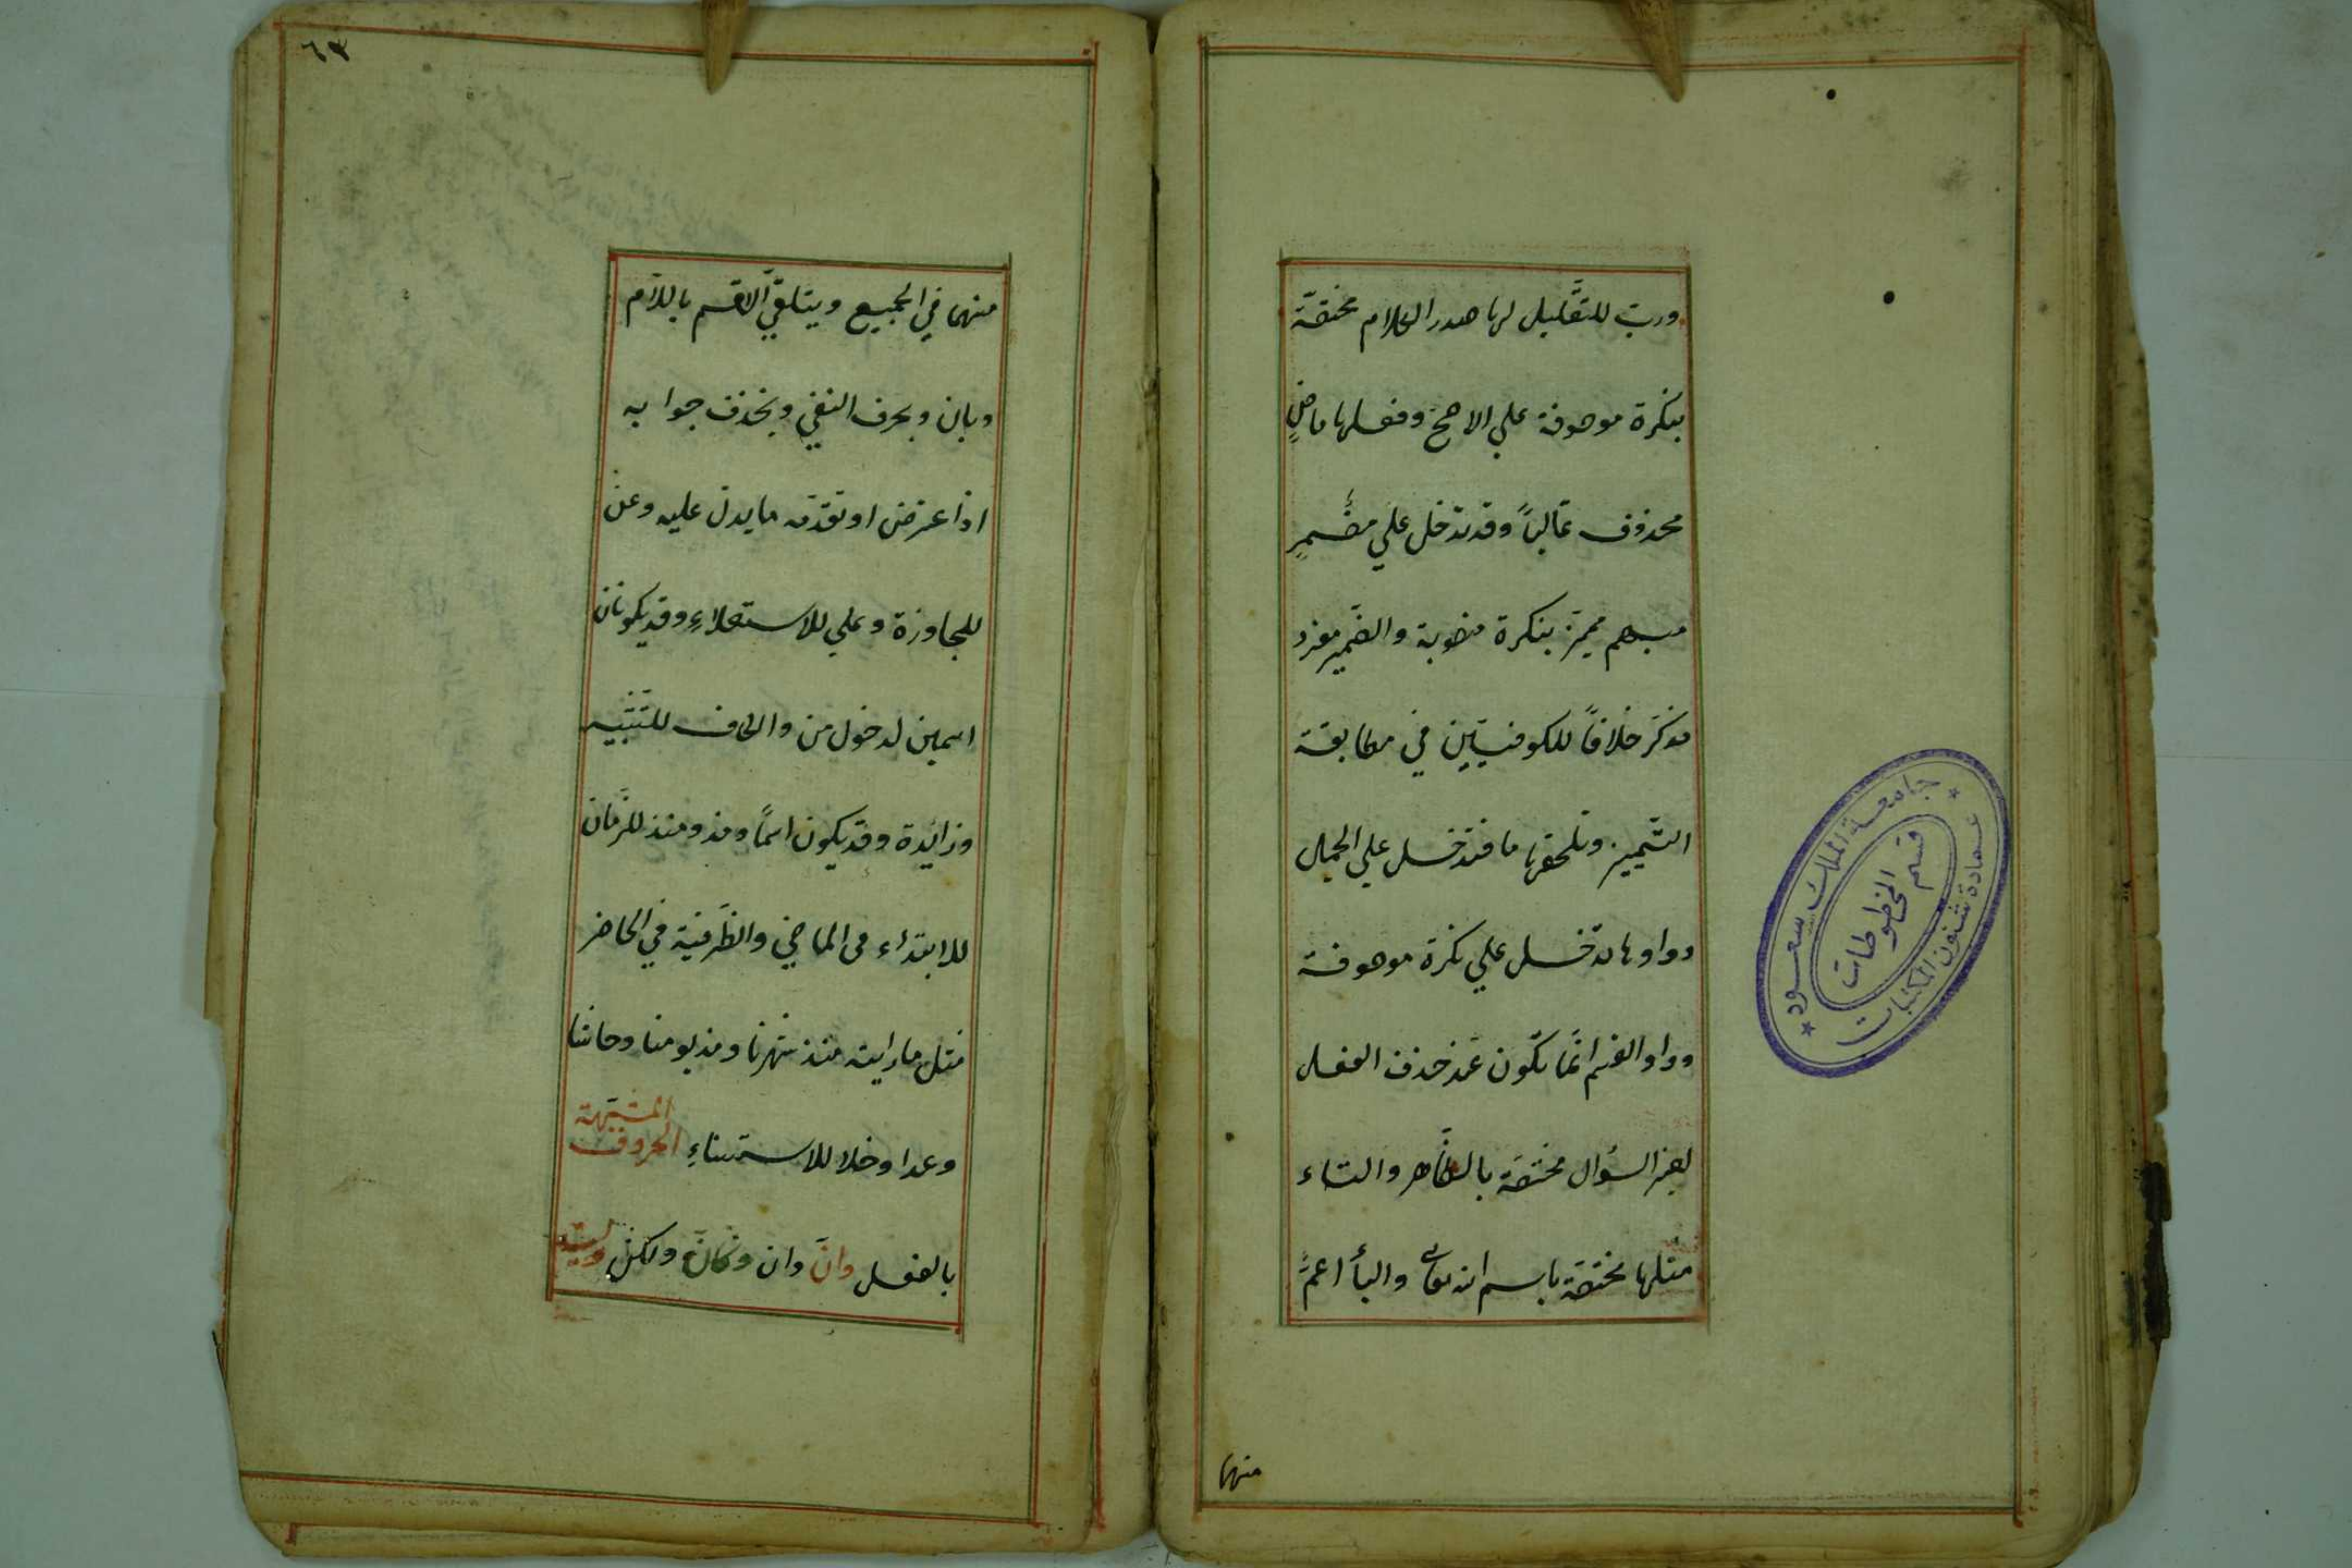 ورب للتقليل لها صدر الكلام مختصّة
بنكرة موصوفة علي الاصح وفعلها ماضٍ
محذوف غالباً وقد تدخل علي مضمرٍ
مبهم مميّز بنكرة منصوبة والضّمير مفرد
مذكر خلافاً للكوفيين في مطابقة
التّمييز وتلحقها ما فتدخل علي الجمل
وواوها تدخل علي نكرة موصوفة
وواو القسم انّما تكون عند حذف الفعل
لغير السؤال مختصّة بالظّاهر والتاء
مثلها مختصّة باسم الله تعالى والبأ اعمّ
منها
جامعة الملك سعود
قسم المخطوطات
عمادة شئون المكتبات
٦٣
منها في الجميع ويتلقّي القسم باللام
وبان وبحرف النفي ويحذف جوابه
اذا اعترض او تقدّمه ما يدل عليه وعن
للمجاوزة وعلي للاستعلاءِ وقد يكونان
اسمين لدخول من والكاف للتشبيه
وزائدة وقد يكون اسماً ومذ ومنذ للزّمان
للابتداء في الماضي والظّرفية في الحاضر
مثل ما رايته منذ شهرنا ومذ يومنا وحاشا
وعدا وخلا للاستثناءِ الحروف المشبّهة
بالفعل وانّ وان وكانّ ولكن وليت